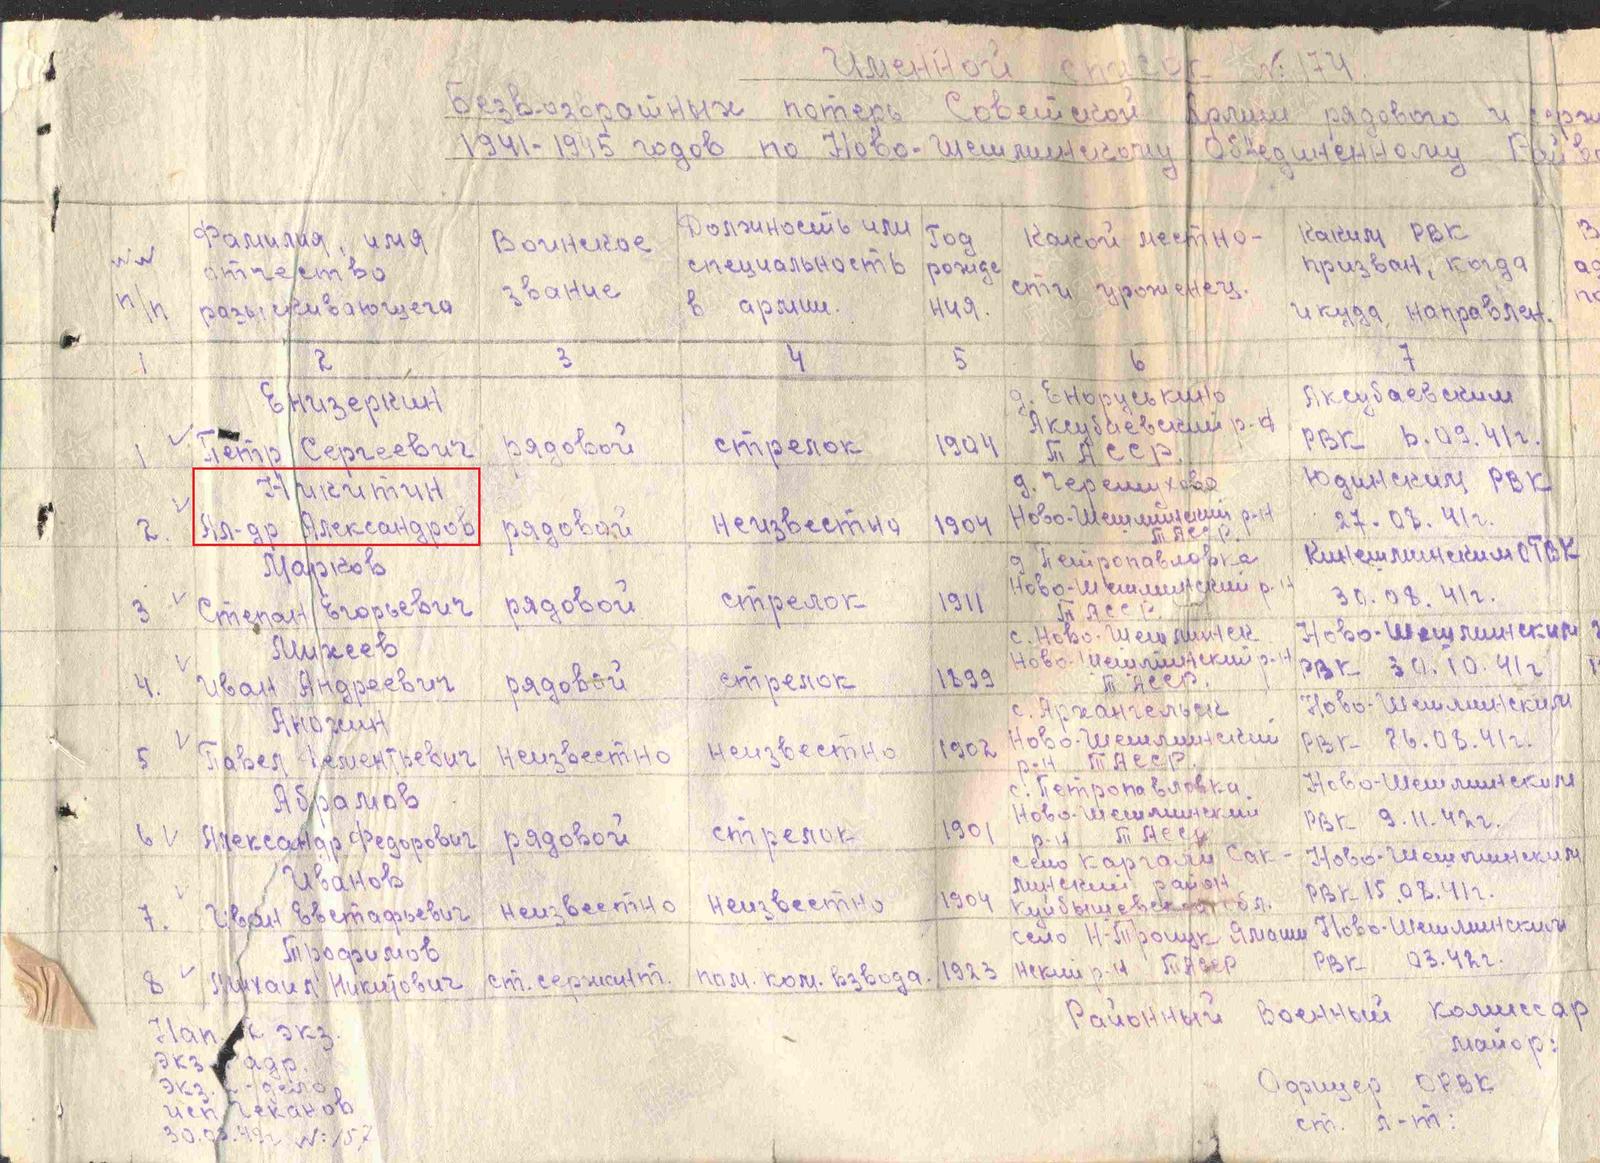 Именной список № 174.
Безвозвратных потерь Советской Армии рядового и
1941-1945 годов по Ново-Шешминскому Объединенному
№№ п/п
Фамилия, имя отчество разыскивающего
Воинское звание
Должность или специальность в армии.
Год рождения.
Какой местности уроженец.
Каким РВК призван, когда и куда направлен.
1 2 3 4 5 6 7
1 Енизеркин Петр Сергеевич рядовой стрелок 1904 д. Еноруськино Аксубаевский р-н ТАССР. Аксубаевским РВК 6.09.41г.
2. Никитин Ал-др Александров рядовой неизвестно 1904 д. Черемухово Ново-Шешминский р-н ТАССР. Юдинским РВК 27.08.41г.
3 Марков Степан Егорьевич рядовой стрелок 1911 д. Петропавловка Ново-Шешминский р-н ТАССР. Кинешминским ОГВК 30.08.41г.
4. Михеев Иван Андреевич рядовой стрелок 1899 с. Ново-Шешминск Ново-Шешминский р-н ТАССР. Ново-Шешминским РВК 30.10.41г
5 Анохин Павел Дементьевич неизвестно неизвестно 1902 с. Архангельск Ново-Шешминский р-н ТАССР. Ново-Шешминским РВК 26.08.41г.
6 Абрамов Александр Федорович рядовой стрелок 1901 с. Петропавловка. Ново-Шешминский р-н ТАССР Ново-Шешминским РВК 9.11.42г.
7. Иванов Иван Евстафьевич неизвестно неизвестно 1904 село Каргали Сак-линский район Куйбышевской обл. Ново-Шешминским РВК 15.08.41г.
8 Трофимов Михаил Никитович ст. сержант. пом. ком. взвода. 1923 село Н-Троицк Ямашинский р-н ТАССР Ново-Шешминским РВК 03.42г.
Районный Военный Комиссар
майор:
Офицер ОРВК
ст. л-т:
Нап. экз.
экз. адр.
экз. - дело
исп. Чеканов
30.03.49г №: 157